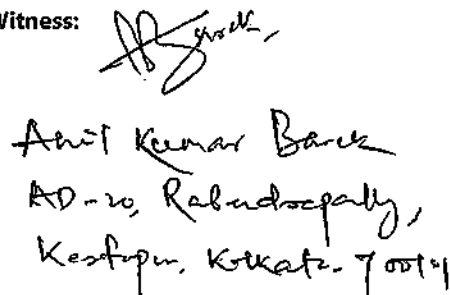 Witness:
Anil Kumar Barck
AD-20, Rabindrapally,
Kestopur, Kolkata-700101